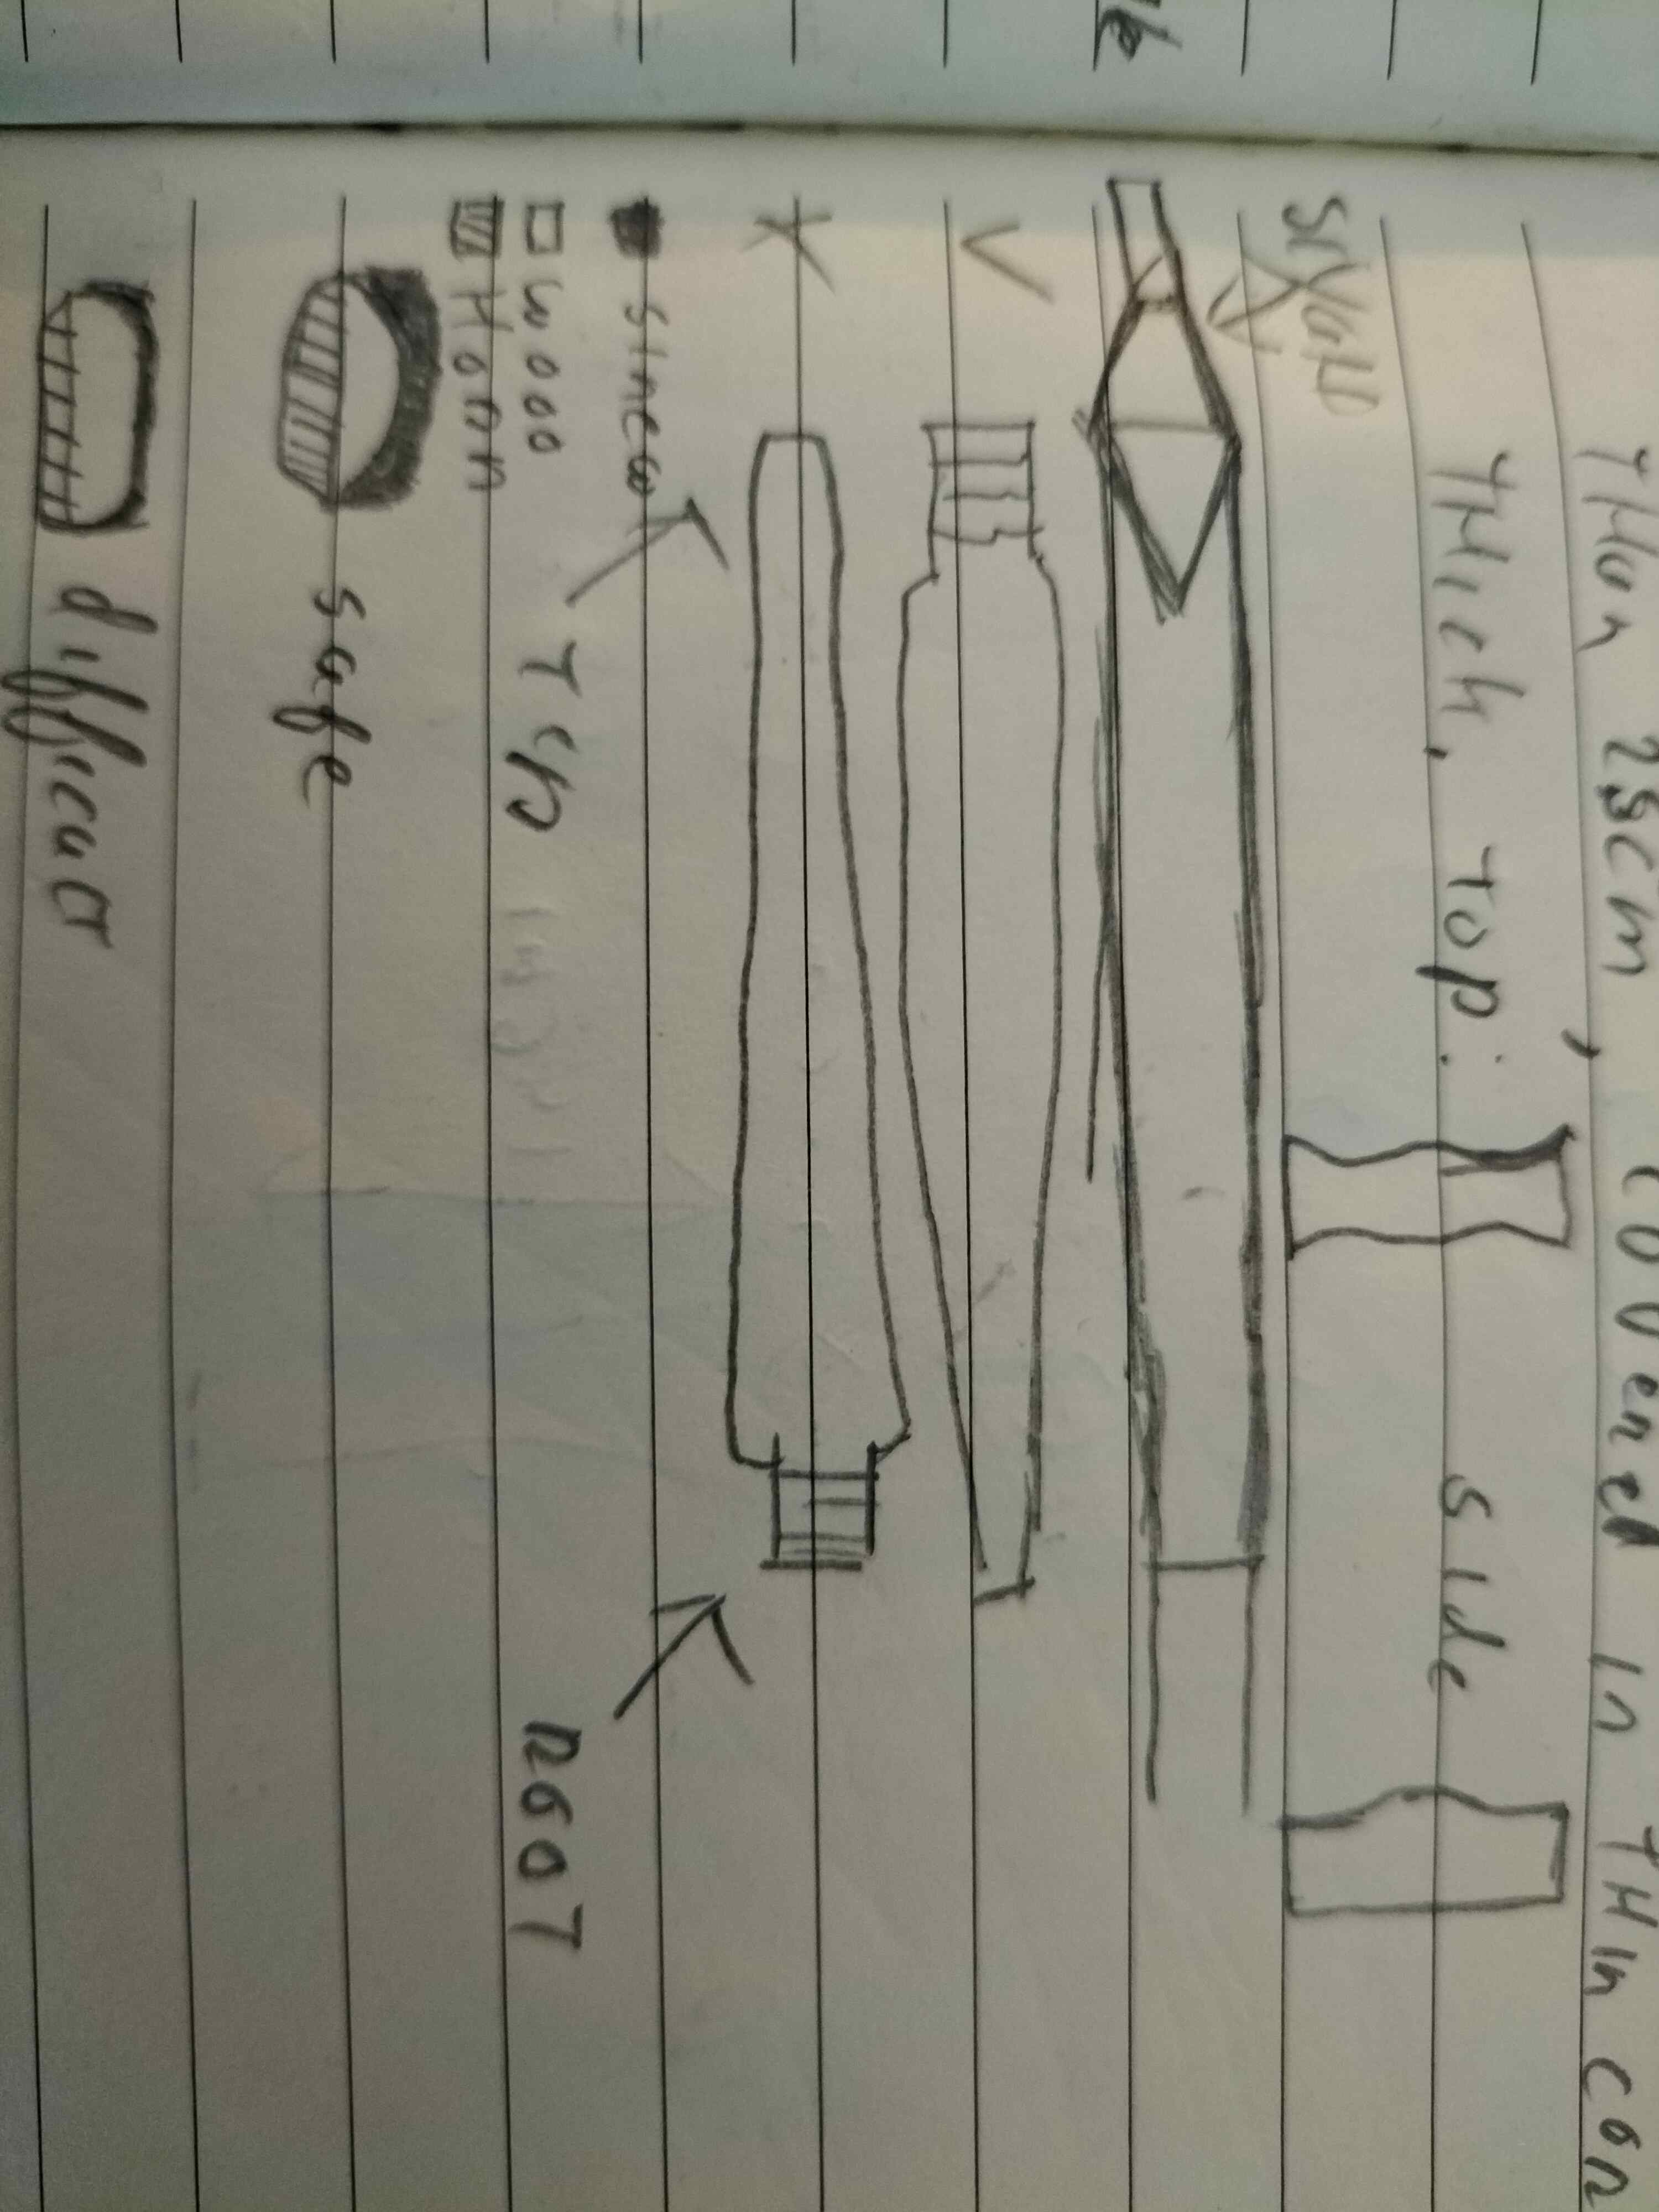 THan 25cm, covered in THin con
THich, Top: side
SIYAH
V
X
sinew
wood
Horn
Tep
ROOT
safe
difficult